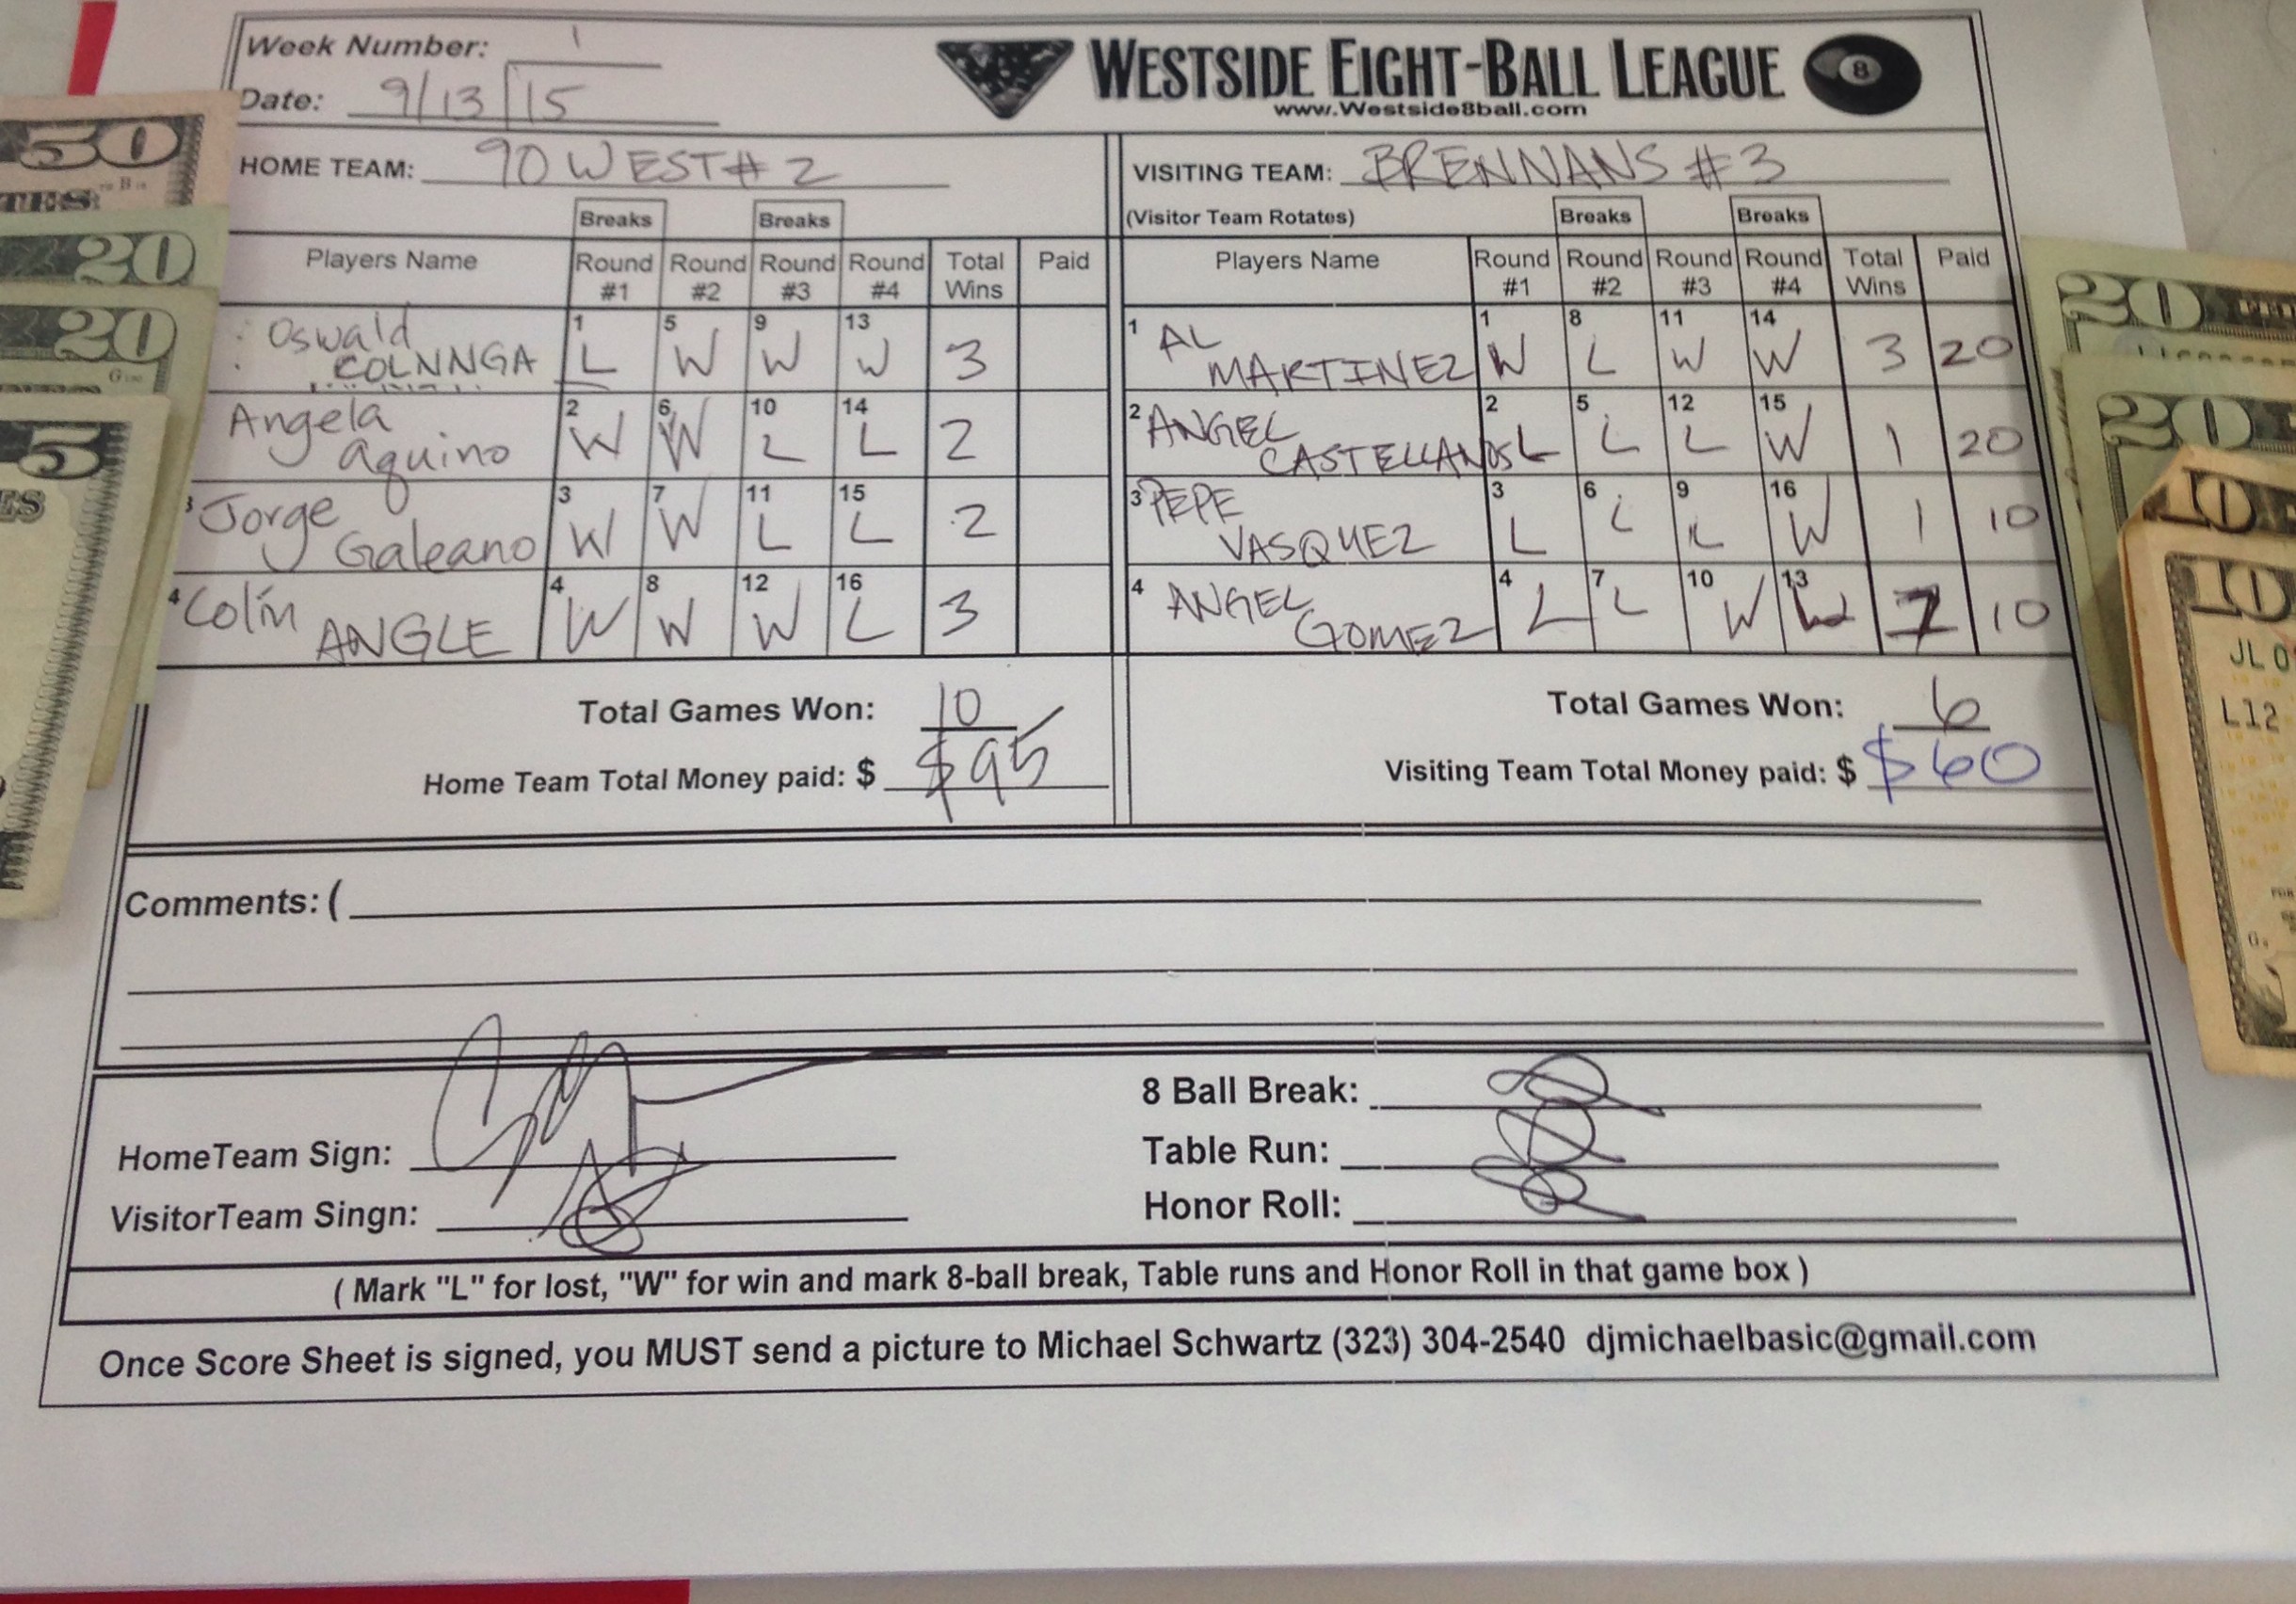 Week Number: 1
Date: 9/13/15
WESTSIDE EIGHT-BALL LEAGUE
8
www.Westside8ball.com
HOME TEAM: 90 WEST # 2
VISITING TEAM: BRENNANS # 3
Breaks Breaks
(Visitor Team Rotates) Breaks Breaks
Players Name Round #1 Round #2 Round #3 Round #4 Total Wins Paid
Players Name Round #1 Round #2 Round #3 Round #4 Total Wins Paid
Oswald COLNNGA 1 L 5 W 9 W 13 W 3
1 AL MARTINEZ 1 W 8 L 11 W 14 W 3 20
Angela aquino 2 W 6 W 10 L 14 L 2
2 ANGEL CASTELLANOS 2 L 5 L 12 L 15 W 1 20
3 Jorge Galeano 3 W 7 W 11 L 15 L 2
3 PEPE VASQUEZ 3 L 6 L 9 L 16 W 1 10
4 Colin ANGLE 4 W 8 W 12 W 16 L 3
4 ANGEL GOMEZ 4 L 7 L 10 W 13 10
Total Games Won: 10
Total Games Won: 6
Home Team Total Money paid: $ $95
Visiting Team Total Money paid: $ $60
Comments: (
HomeTeam Sign:
VisitorTeam Singn:
8 Ball Break:
Table Run:
Honor Roll:
( Mark "L" for lost, "W" for win and mark 8-ball break, Table runs and Honor Roll in that game box )
Once Score Sheet is signed, you MUST send a picture to Michael Schwartz (323) 304-2540 djmichaelbasic@gmail.com
50
20
20
5
20
20
10
10
JL 0
L12